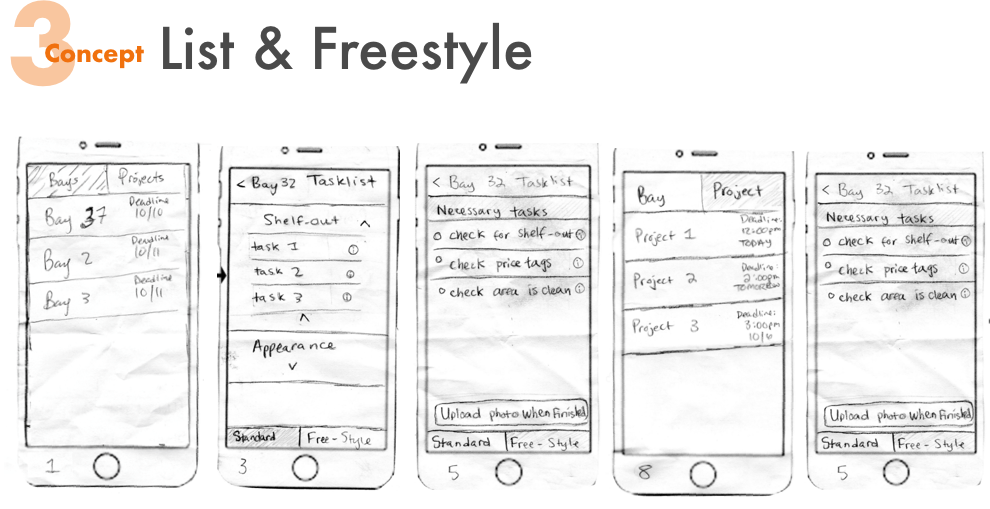 3
Concept
List & Freestyle
Bays
Projects
Bay 37
Deadline
10/10
Bay 2
Deadline
10/11
Bay 3
Deadline
10/11
1
< Bay 32 Tasklist
Shelf-out ^
task 1 i
task 2 i
task 3 i
^
Appearance
v
Standard
Free-Style
3
< Bay 32 Tasklist
Necessary tasks
check for shelf-out i
check price tags i
check area is clean i
Upload photo when finished
Standard
Free-Style
5
Bay
Project
Project 1
Deadline:
12:00pm
TODAY
Project 2
Deadline:
2:00pm
TOMORROW
Project 3
Deadline:
3:00pm
8
< Bay 32 Tasklist
Necessary tasks
check for shelf-out i
check price tags i
check area is clean i
Upload photo when finished
Standard
Free-Style
5